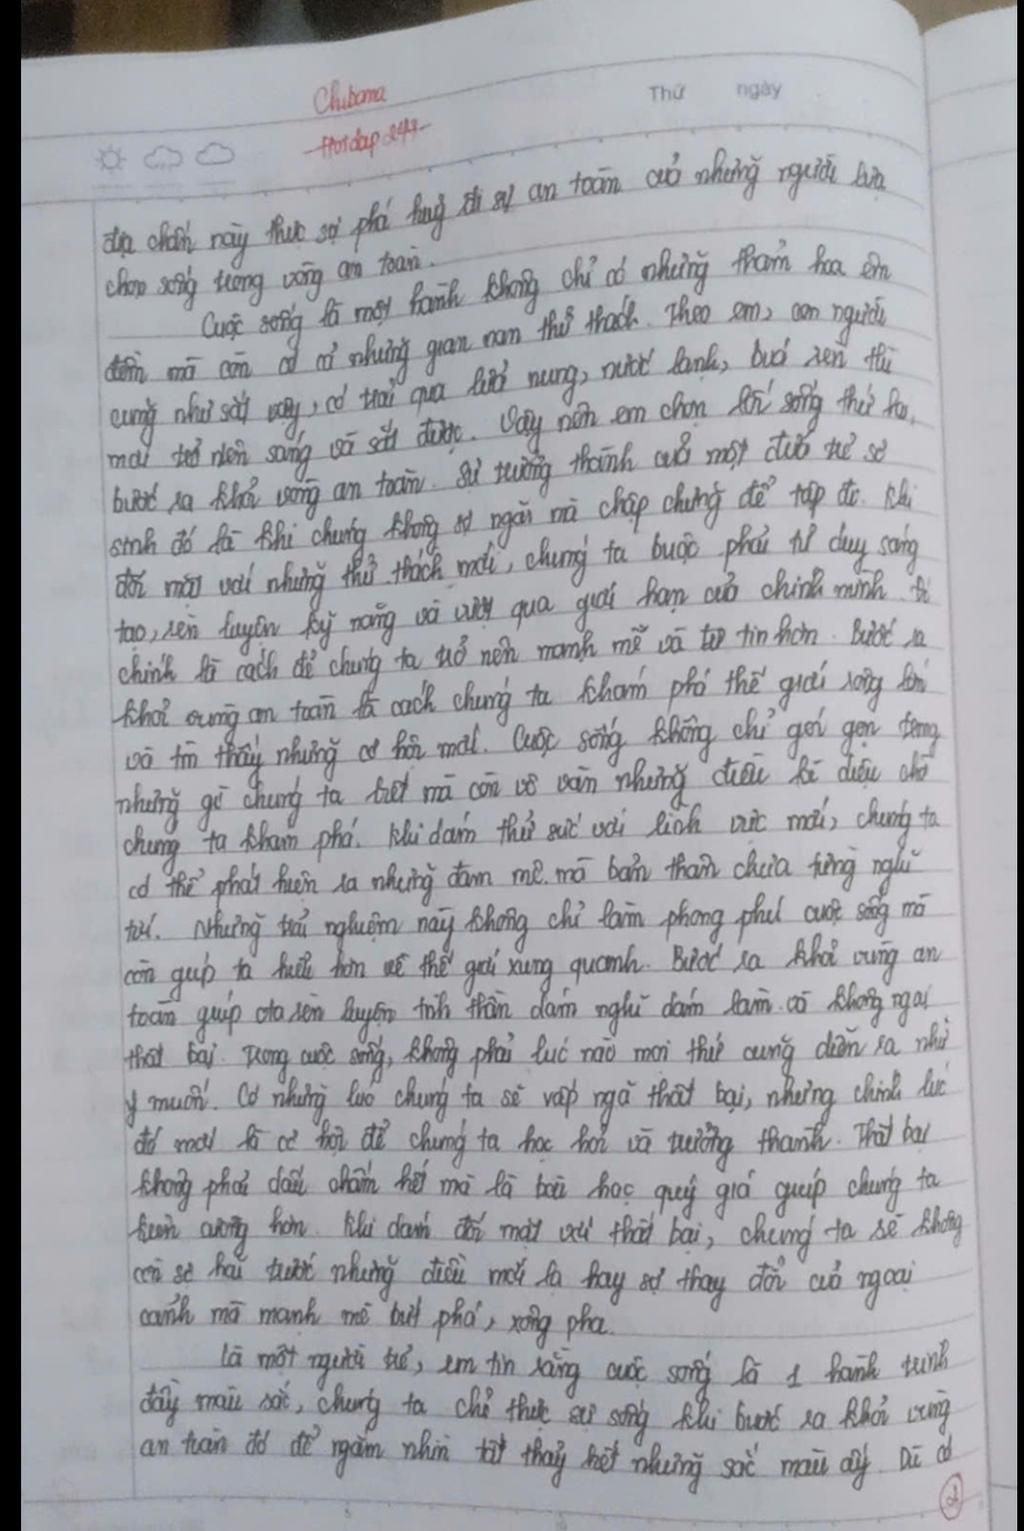 Chuboma
Thứ ngày
địa chấn này thực sự phá huỷ đi sự an toàn của những người lựa
chọn sống trong vòng an toàn.
Cuộc sống là một hành không chỉ có những thảm hoa êm
đềm mà còn có cả những gian nan thử thách. Theo em, con người
cũng như sắt vậy, có trải qua lửa nung, nước lạnh, búa rèn thì
mới trở nên sáng và sắt được. Vậy nên em chọn lối sống thứ hai,
bước ra khỏi vòng an toàn. Sự trưởng thành của một đứa trẻ sơ
sinh đó là khi chúng không sợ ngã mà chập chững để tập đi. Khi
đối mặt với những thử thách mới, chúng ta buộc phải tư duy sáng
tạo, rèn luyện kỹ năng và vượt qua giới hạn của chính mình. Đó
chính là cách để chúng ta trở nên mạnh mẽ và tự tin hơn. Bước ra
khỏi vùng an toàn là cách chúng ta khám phá thế giới rộng lớn
và tìm thấy những cơ hội mới. Cuộc sống không chỉ gói gọn trong
những gì chúng ta biết mà còn vô vàn những điều kì diệu chờ
chúng ta khám phá. Khi dám thử sức với lĩnh vực mới, chúng ta
có thể phát hiện ra những đam mê mà bản thân chưa từng nghĩ
tới. Những trải nghiệm này không chỉ làm phong phú cuộc sống mà
còn giúp ta hiểu hơn về thế giới xung quanh. Bước ra khỏi vùng an
toàn giúp ta rèn luyện tinh thần dám nghĩ dám làm và không ngại
thất bại. Trong cuộc sống, không phải lúc nào mọi thứ cũng diễn ra như
ý muốn. Có những lúc chúng ta sẽ vấp ngã thất bại, nhưng chính lúc
đó mới là cơ hội để chúng ta học hỏi và trưởng thành. Thất bại
không phải dấu chấm hết mà là bài học quý giá giúp chúng ta
kiên cường hơn. Khi dám đối mặt với thất bại, chúng ta sẽ không
còn sợ hãi trước những điều mới lạ hay sự thay đổi của ngoại
cảnh mà mạnh mẽ bứt phá, xông pha.
Là một người trẻ, em tin rằng cuộc sống là 1 hành trình
đầy màu sắc, chúng ta chỉ thực sự sống khi bước ra khỏi vùng
an toàn đó để ngắm nhìn tất thảy hết những sắc màu ấy. Dù có
2